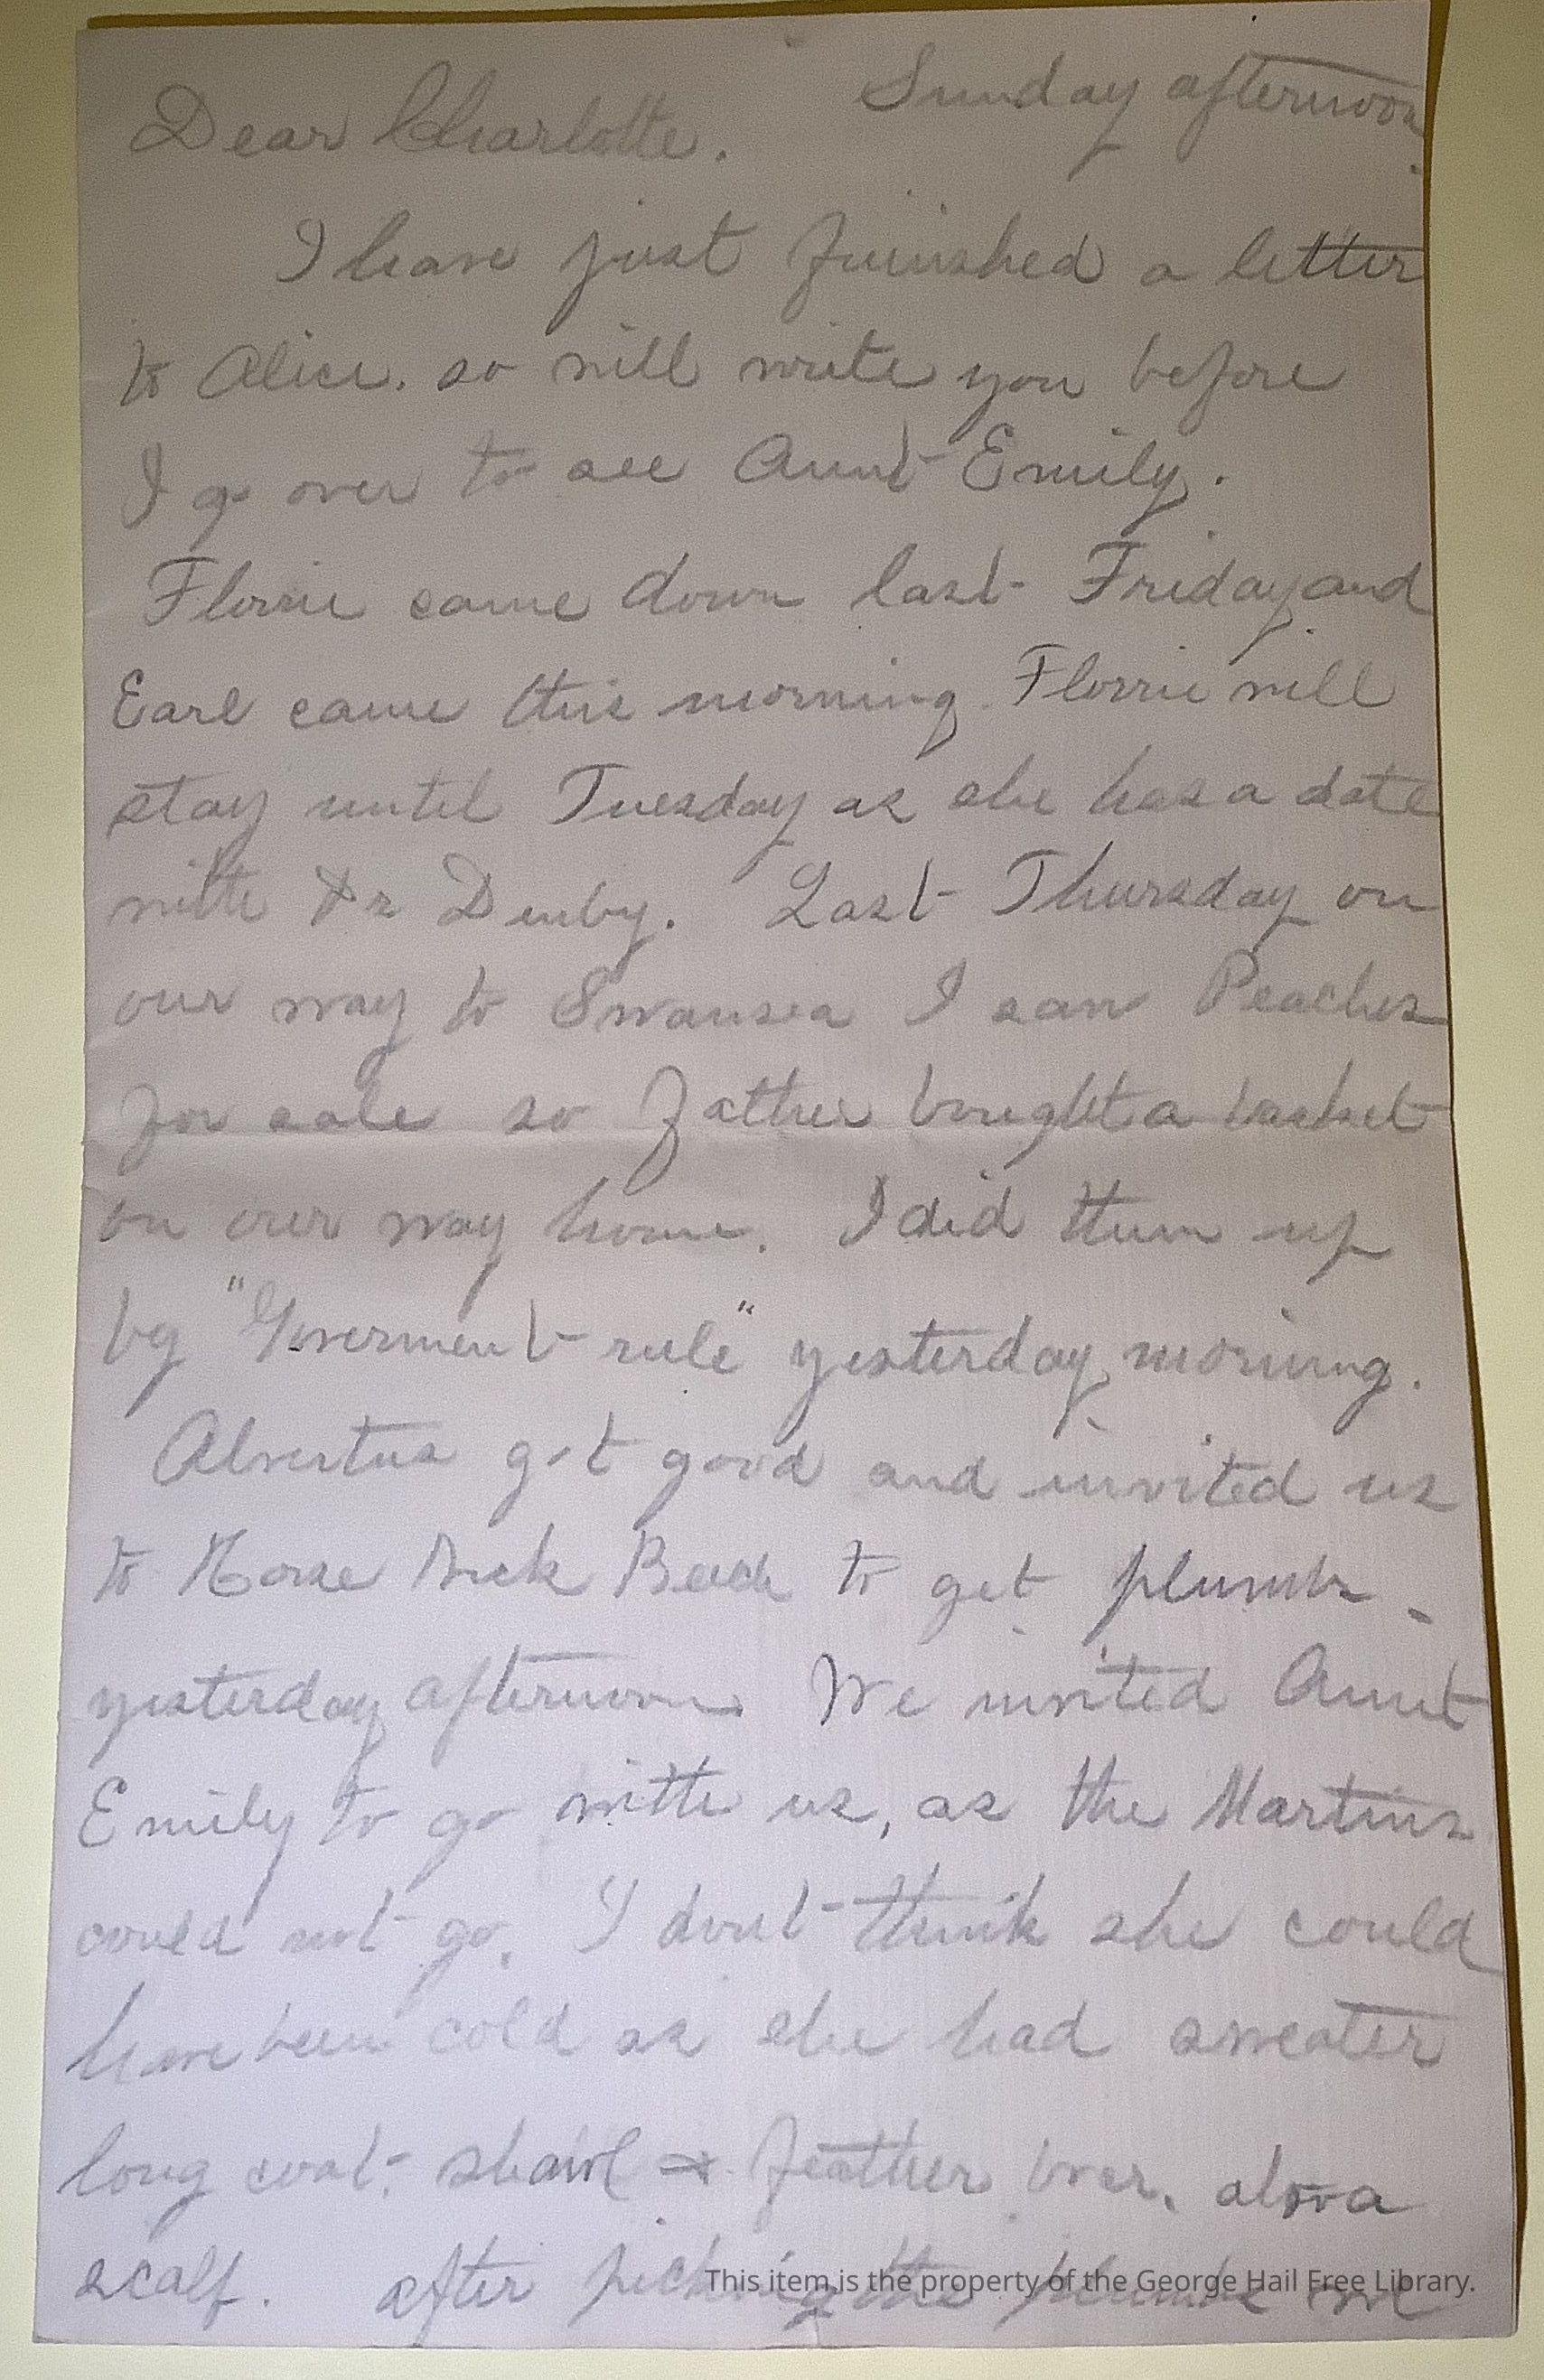 Sunday afternoon.
Dear Charlotte.
I have just finished a letter
to Alice. so will write you before
I go over to see Aunt Emily.
Florrie came down last Friday and
Earl came this morning. Florrie will
stay until Tuesday as she has a date
with Dr Denby. Last Thursday on
our way to Swansea I saw Peaches
for sale so Father bought a basket
on our way home. I did them up
by "Goverment rule" yesterday morning.
got good and invited us
to Horse Neck Beach to get plumbs
yesterday afternoon. We invited Aunt
Emily to go with us, as the Martins
could not go. I dont think she could
have been cold as she had sweater
long coat, shawl & feather boer. also a
scalf. after picking the plumbs we
This item is the property of the George Hail Free Library.